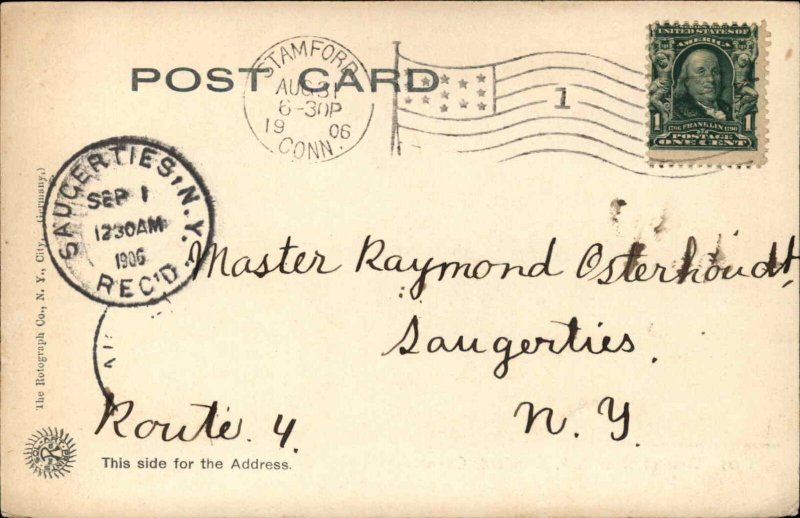 POST CARD
STAMFORD
AUG 31
6-30P
19 06
CONN.
1
UNITED STATES OF
AMERICA
1 1
1706 FRANKLIN 1790
POSTAGE
ONE CENT
SAUGERTIES, N.Y.
SEP 1
1230AM
1906
REC'D
Master Raymond Osterhoudt
Saugerties.
N. Y.
Route. 4.
This side for the Address.
The Rotograph Co., N. Y., City. (Germany.)